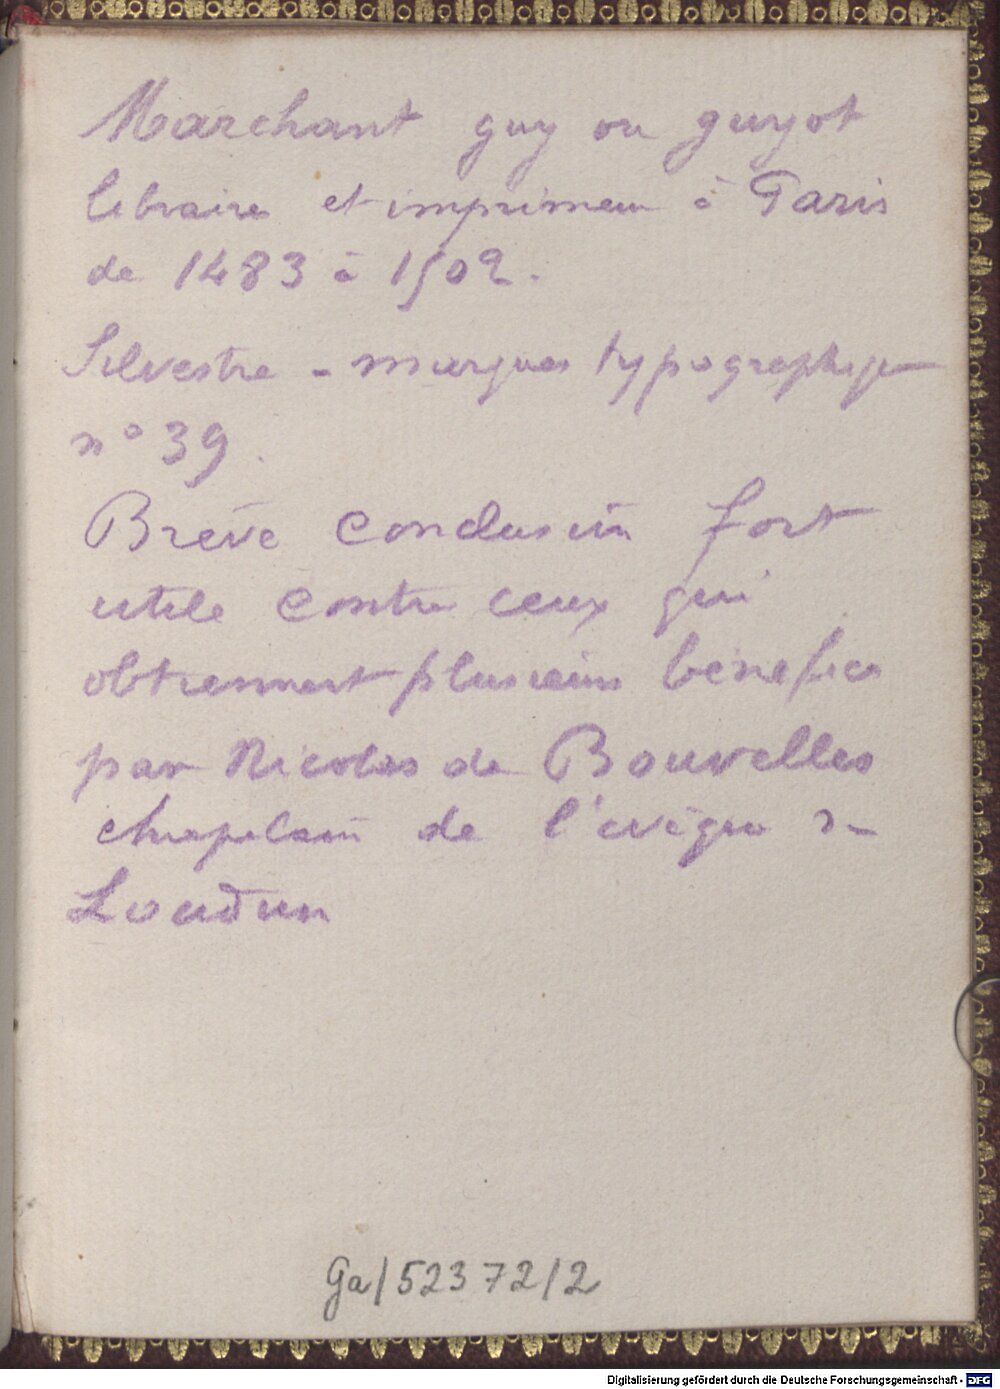 Marchant guy ou guyot
libraire et imprimeur à Paris
de 1483 à 1502.
Silvestre - marques typographiques
n° 39.
Brève conclusion fort
utile contre ceux qui
obtiennent plusieurs benefices
par Nicolas de Bouvelles
chapelain de l'evêque de
Loudun
Ga/52372/2
Digitalisierung gefördert durch die Deutsche Forschungsgemeinschaft - DFG